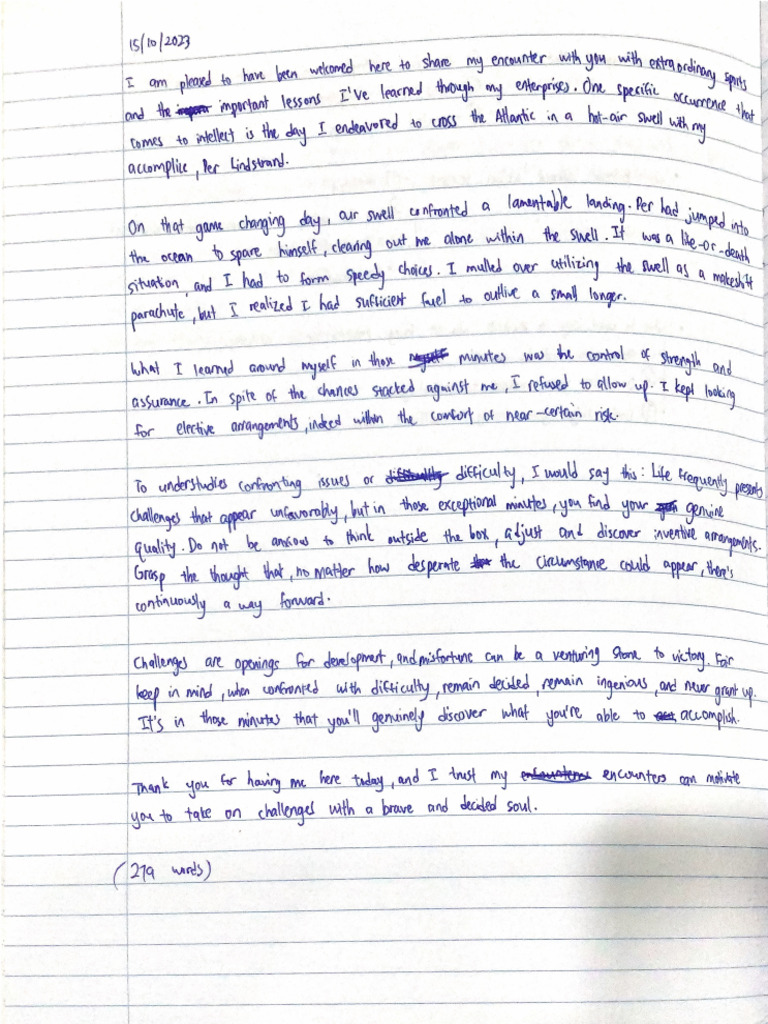 15/10/2023
I am pleased to have been welcomed here to share my encounter with you with extraordinary sports
and the important lessons I've learned through my enterprises. One specific occurrence that
comes to intellect is the day I endeavored to cross the Atlantic in a hot-air swell with my
accomplice, Per Lindstrand.
On that game changing day, our swell confronted a lamentable landing. Per had jumped into
the ocean to spare himself, clearing out me alone within the swell. It was a life-or-death
situation, and I had to form speedy choices. I mulled over utilizing the swell as a makeshift
parachute, but I realized I had sufficient fuel to outlive a small longer.
What I learned around myself in those minutes was the control of strength and
assurance. In spite of the chances stacked against me, I refused to allow up. I kept looking
for elective arrangements, indeed within the comfort of near-certain risk.
To understudies confronting issues or difficulty, I would say this: Life frequently presents
challenges that appear unfavorably, but in those exceptional minutes, you find your genuine
quality. Do not be anxious to think outside the box, adjust and discover inventive arrangements.
Grasp the thought that, no matter how desperate the circumstance could appear, there's
continuously a way forward.
Challenges are openings for development, and misfortune can be a venturing stone to victory. Fair
keep in mind, when confronted with difficulty, remain decided, remain ingenious, and never grant up.
It's in those minutes that you'll genuinely discover what you're able to accomplish.
Thank you for having me here today, and I trust my encounters can motivate
you to take on challenges with a brave and decided soul.
(279 words)